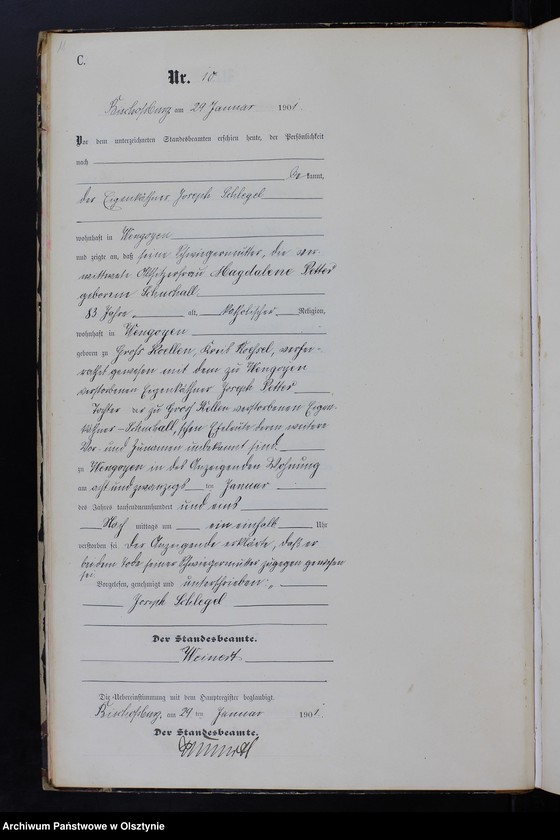 C.
Nr. 10
Bischofsburg am 29 Januar 1901.
Vor dem unterzeichneten Standesbeamten erschien heute, der Persönlichkeit
nach
be kannt,
der Eigenkäthner Joseph Schlegel
wohnhaft in Wengoyen
und zeigte an, daß seine Schwiegermutter, die ver-
wittwete Altsitzerfrau Magdalene Petter
geborene
83 Jahre alt, katholischer Religion,
wohnhaft in Wengoyen
geboren zu Groß Koellen, Kreis Roessel, verhei-
rathet gewesen mit dem zu Wengoyen
verstorbenen Eigenkäthner Joseph Petter
Tochter der zu Groß Köllen verstorbenen Eigen-
käthner schen Eheleute deren weitere
Vor- und Zunamen unbekannt sind.
zu Wengoyen in des Anzeigenden Wohnung
am acht und zwanzigsten Januar
des Jahres tausendneunhundert und eins
Nach mittags um ein einhalb Uhr
verstorben sei Der Anzeigende erklärte, daß er
bei dem Tode seiner Schwiegermutter zugegen gewesen
sei
Vorgelesen, genehmigt und unterschrieben:
Joseph Schlegel
Der Standesbeamte.
Weinert
Die Uebereinstimmung mit dem Hauptregister beglaubigt.
Bischofsburg, am 29 ten Januar 1901.
Der Standesbeamte.
Archiwum Państwowe w Olsztynie